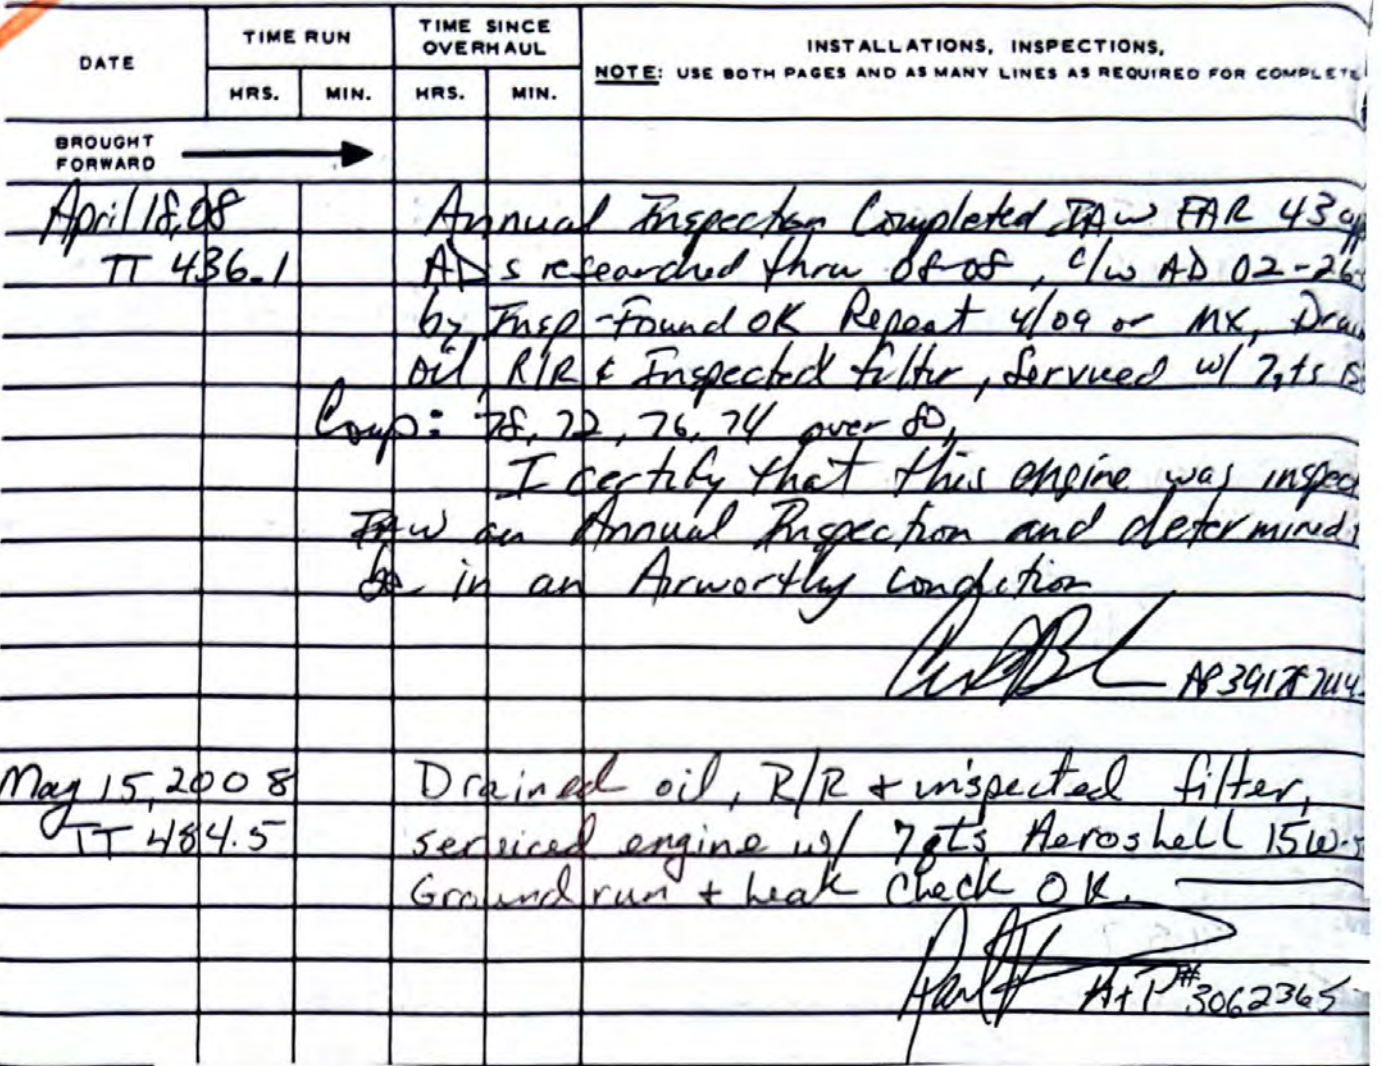 DATE
TIME RUN
TIME SINCE OVERHAUL
INSTALLATIONS, INSPECTIONS,
NOTE: USE BOTH PAGES AND AS MANY LINES AS REQUIRED FOR COMPLETE
HRS. MIN. HRS. MIN.
BROUGHT FORWARD
April 18,08 Annual Inspection Completed IAW FAR 43 app
TT 436.1 ADs researched thru 08-08, c/w AD 02-26
by Insp-Found OK Repeat 4/09 or MX, Drain
oil, R/R & Inspected filter, Serviced w/ 7qts
Comp: 78, 72, 76, 74 over 80,
I certify that this engine was inspec
IAW an Annual Inspection and determined
be in an Airworthy condition
May 15, 2008 Drained oil, R/R + inspected filter,
TT 484.5 serviced engine w/ 7qts Aeroshell 15W-
Ground run + leak check OK.
A+P# 3062365